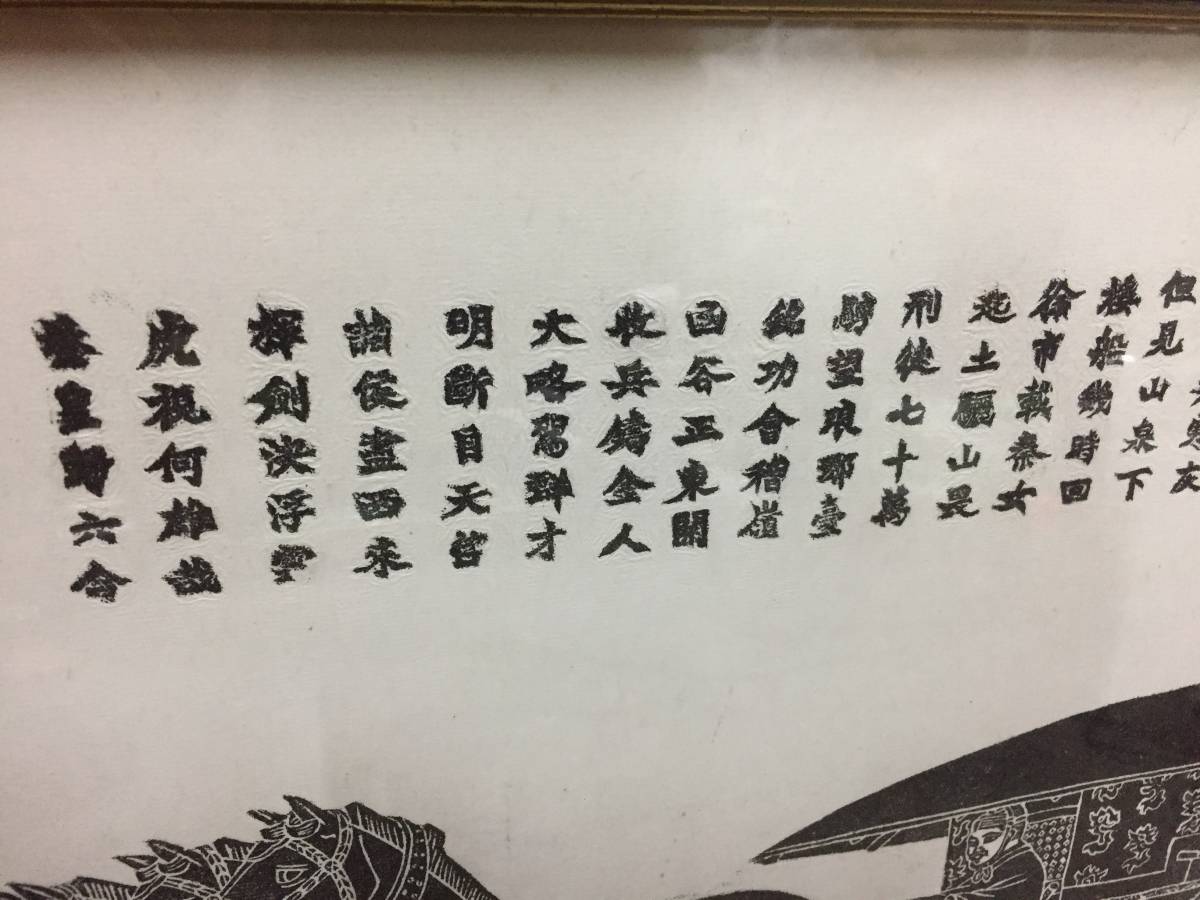 秦皇掃六合
虎視何雄哉
揮劍決浮雲
諸侯盡西來
明斷自天啓
大略駕群才
收兵鑄金人
函谷正東開
銘功會稽嶺
騁望琅耶臺
刑徒七十萬
起土驪山畏
徐市載秦女
樓船幾時回
但見山泉下
寒灰